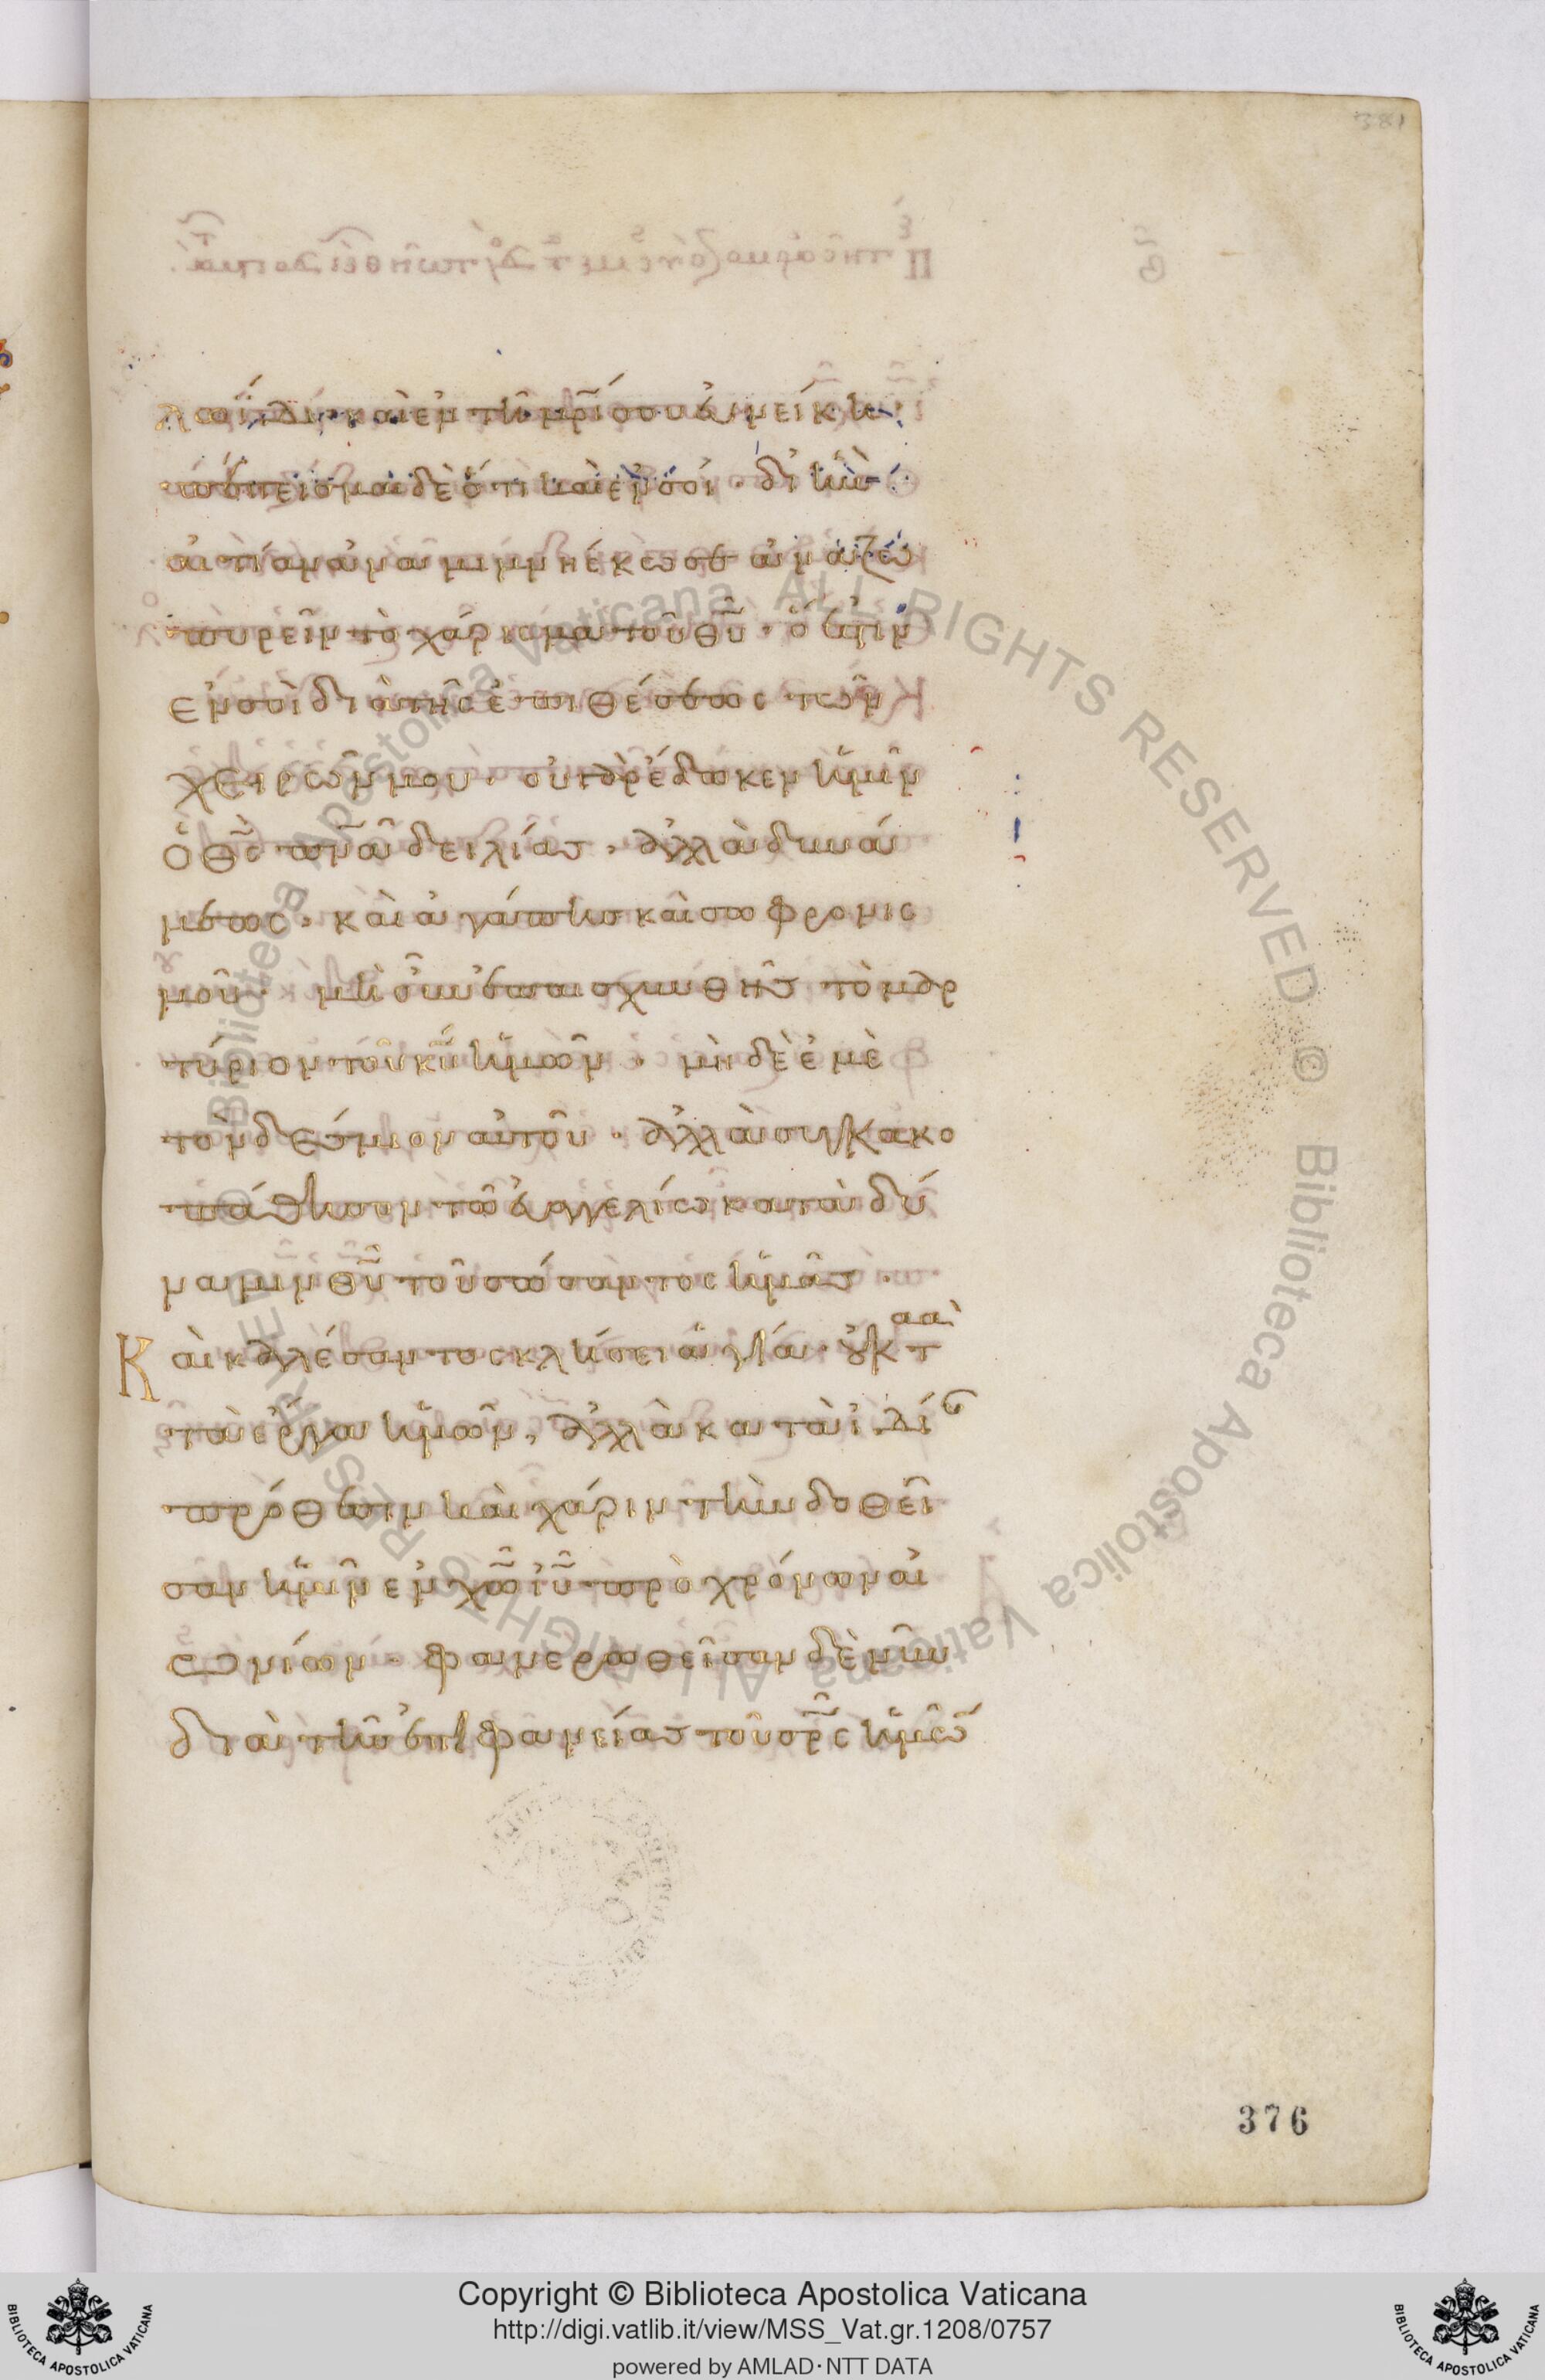 381
λωΐδι· καὶ ἐν τῇ μρ̅ί σου εὐνείκη·
πέπεισμαι δὲ ὅτι καὶ ἐν σοί· δι' ἣν
αἰτίαν ἀναμιμνήσκω σε ἀναζω
πυρεῖν τὸ χάρισμα τοῦ θυ̅· ὅ ἐστιν
ἐν σοὶ διὰ τῆς ἐπιθέσεως τῶν
χειρῶν μου· οὐ γὰρ ἔδωκεν ἡμῖν
ὁ θς̅ πνα̅ δειλίας· ἀλλὰ δυνά
μεως· καὶ ἀγάπης καὶ σωφρονισ
μοῦ· μὴ οὖν ἐπαισχυνθῆς τὸ μαρ
τύριον τοῦ κυ̅ ἡμῶν· μὴ δὲ ἐμὲ
τὸν δέσμιον αὐτοῦ· ἀλλὰ συγκακο
πάθησον τῶ εὐαγγελίω κατὰ δύ
ναμιν θυ̅ τοῦ σώσαντος ἡμᾶς·
Καὶ καλέσαντος κλήσει ἁγία· οὐ κατὰ
τὰ ἔργα ἡμῶν, ἀλλὰ κατὰ ἰδί
πρόθεσιν καὶ χάριν τὴν δοθεῖ
σαν ἡμῖν ἐν χω̅ ιυ̅ πρὸ χρόνων αἰ
ωνίων· φανερωθεῖσαν δὲ νῦν
διὰ τῆς ἐπιφανείας τοῦ σρ̅ς ἡμῶ
376
© Biblioteca Apostolica Vaticana ALL RIGHTS RESERVED © Biblioteca Apostolica Vaticana ALL RIGHTS RESERVED
Copyright © Biblioteca Apostolica Vaticana
http://digi.vatlib.it/view/MSS_Vat.gr.1208/0757
powered by AMLAD·NTT DATA
BIBLIOTECA APOSTOLICA VATICANA
BIBLIOTECA APOSTOLICA VATICANA